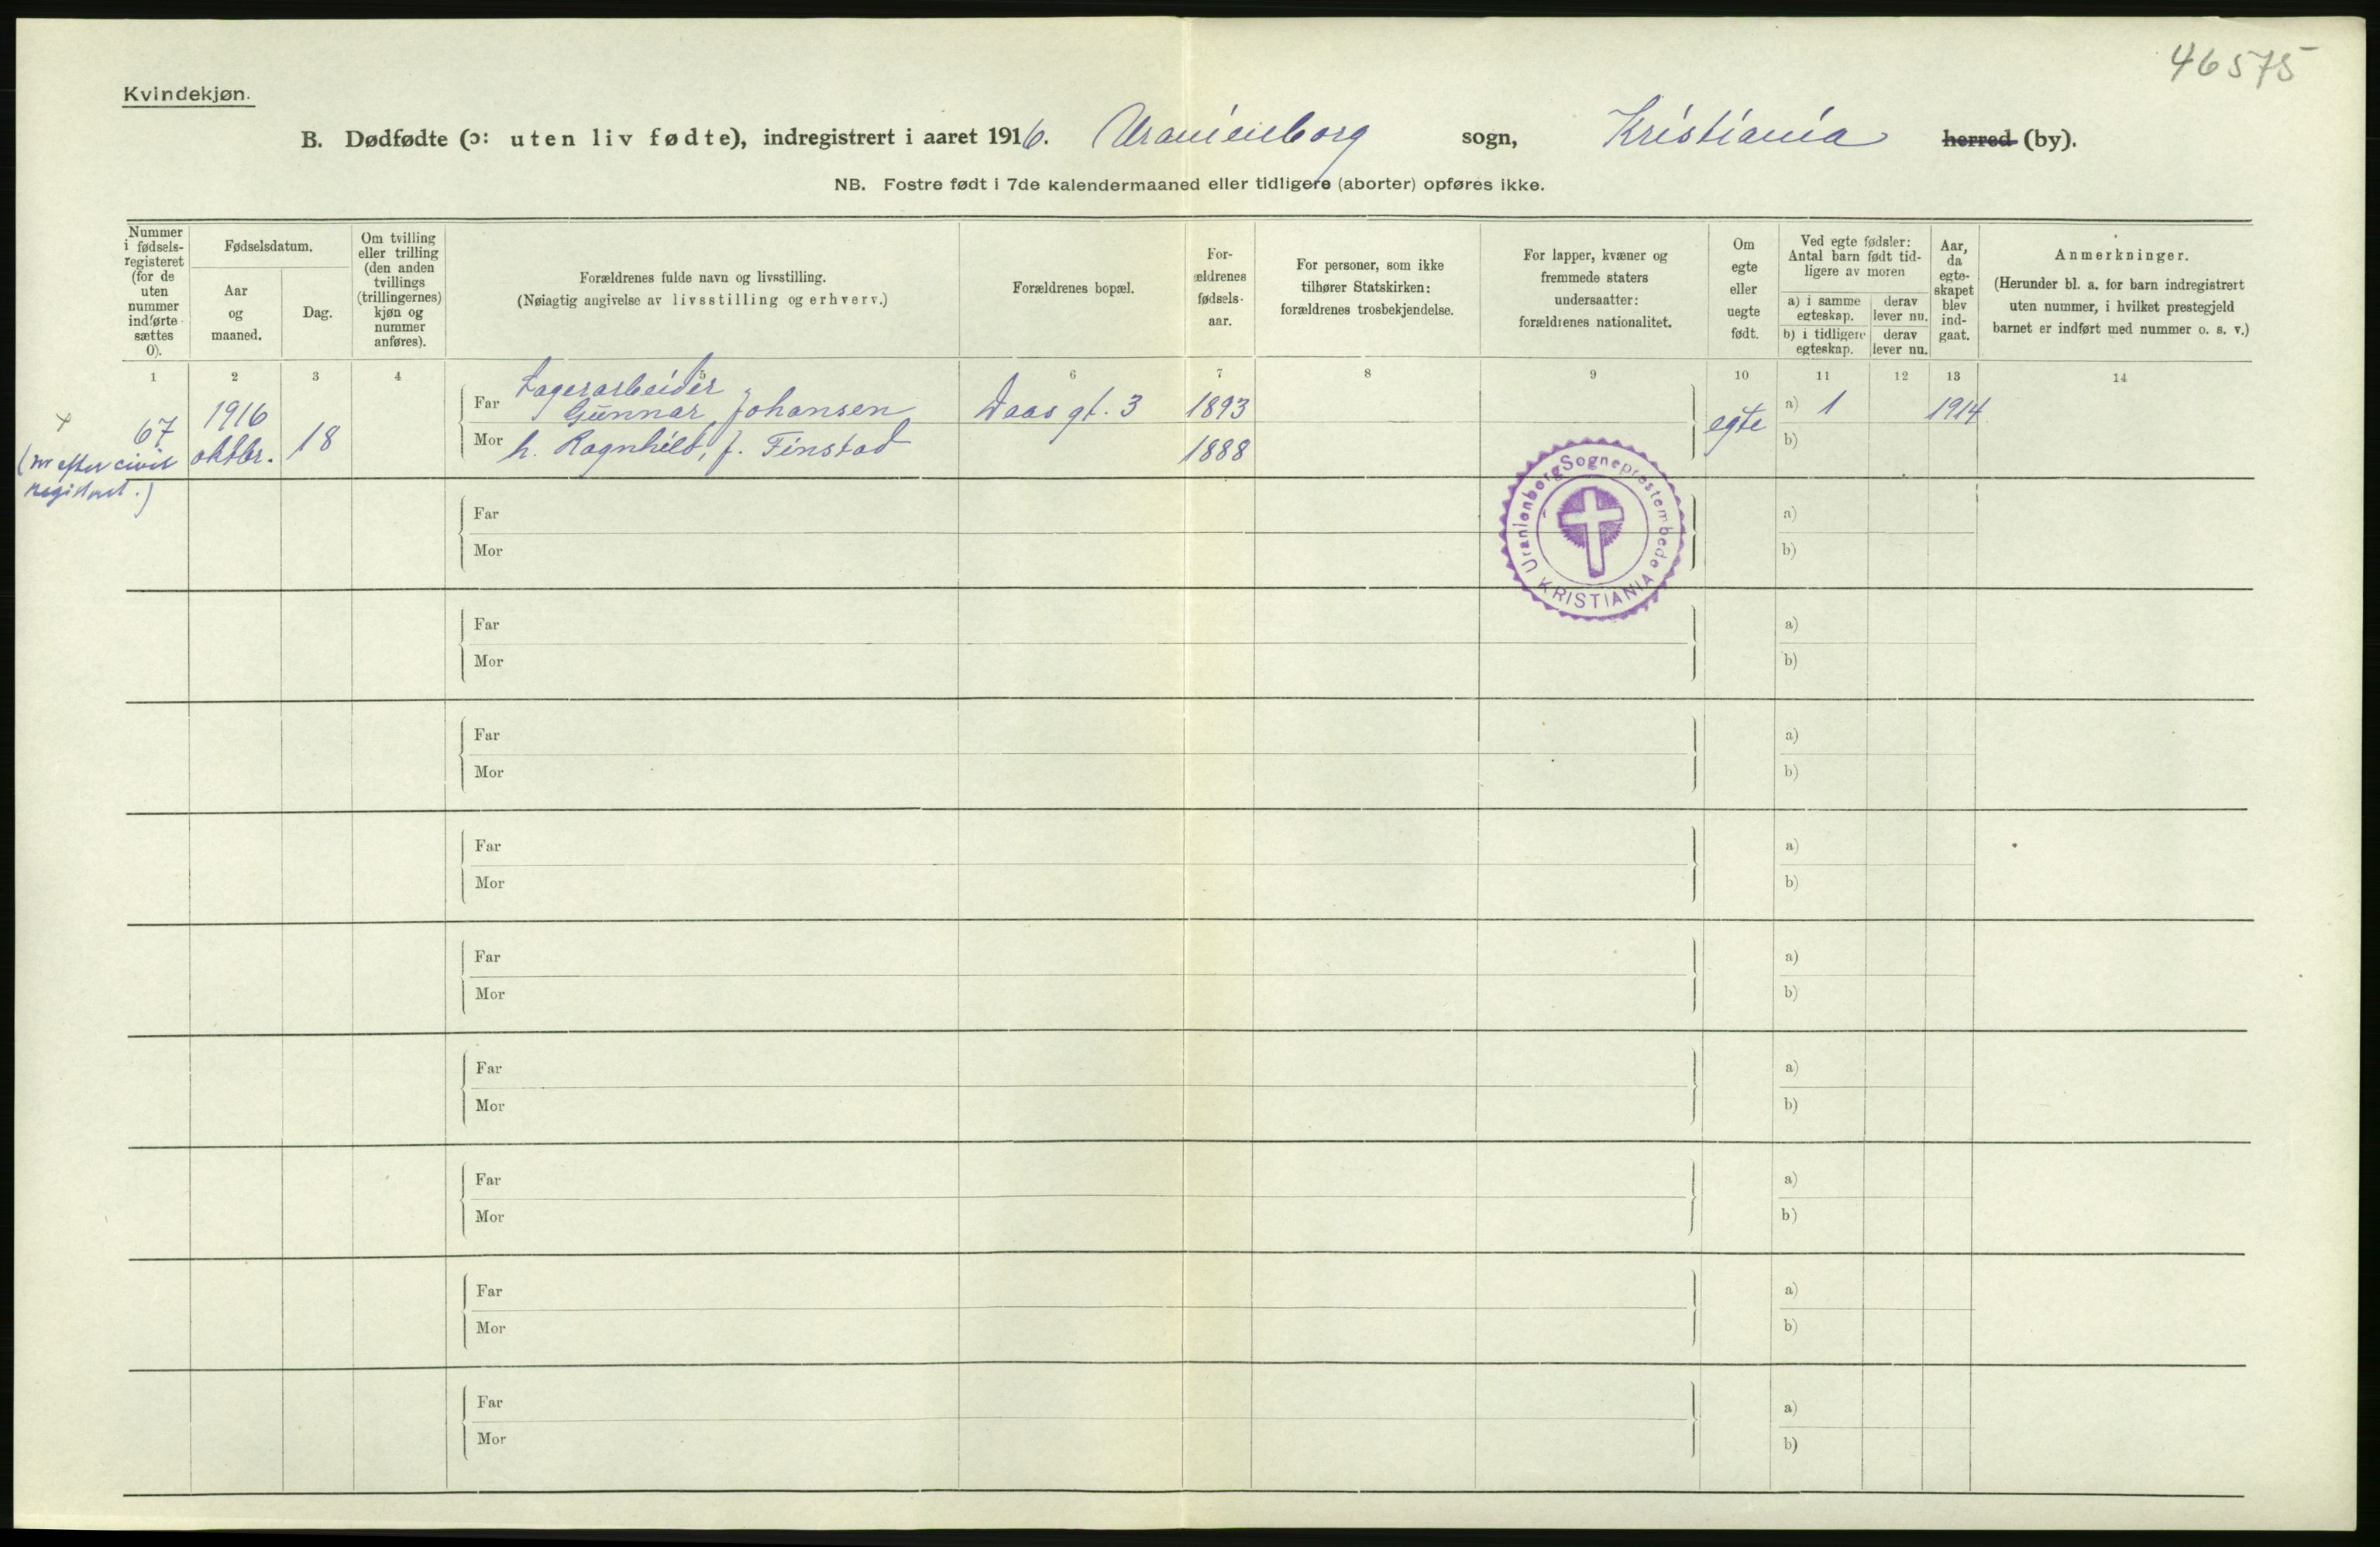 46575
Kvindekjøn.
B. Dødfødte (ɔ: uten liv fødte), indregistrert i aaret 1916. Uranienborg sogn, Kristiania herred (by).
NB. Fostre født i 7de kalendermaaned eller tidligere (aborter) opføres ikke.
Nummer
i fødsels-
registeret
(for de
uten
nummer
indførte
sættes
0).
Fødselsdatum.
Aar
og
maaned.
Dag.
Om tvilling
eller trilling
(den anden
tvillings
(trillingernes)
kjøn og
nummer
anføres).
Forældrenes fulde navn og livsstilling.
(Nøiagtig angivelse av livsstilling og erhverv.)
Forældrenes bopæl.
For-
ældrenes
fødsels-
aar.
For personer, som ikke
tilhører Statskirken:
forældrenes trosbekjendelse.
For lapper, kvæner og
fremmede staters
undersaatter:
forældrenes nationalitet.
Om
egte
eller
uegte
født.
Ved egte fødsler:
Antal barn født tid-
ligere av moren
a) i samme
egteskap.
derav
lever nu.
b) i tidligere
egteskap.
derav
lever nu.
Aar,
da
egte-
skapet
blev
ind-
gaat.
Anmerkninger.
(Herunder bl. a. for barn indregistrert
uten nummer, i hvilket prestegjeld
barnet er indført med nummer o. s. v.)
1 2 3 4 5 6 7 8 9 10 11 12 13 14
Lagerarbeider
67 1916 Far Gunnar Johansen Daas gt. 3 1893 egte a) 1 1914
(nr efter civil oktbr. 18 Mor h. Ragnhild, f. Finstad 1888 b)
registret.)
Uranienborg Sogneprestembede
KRISTIANIA
Far a)
Mor b)
Far a)
Mor b)
Far a)
Mor b)
Far a)
Mor b)
Far a)
Mor b)
Far a)
Mor b)
Far a)
Mor b)
Far a)
Mor b)
Far a)
Mor b)